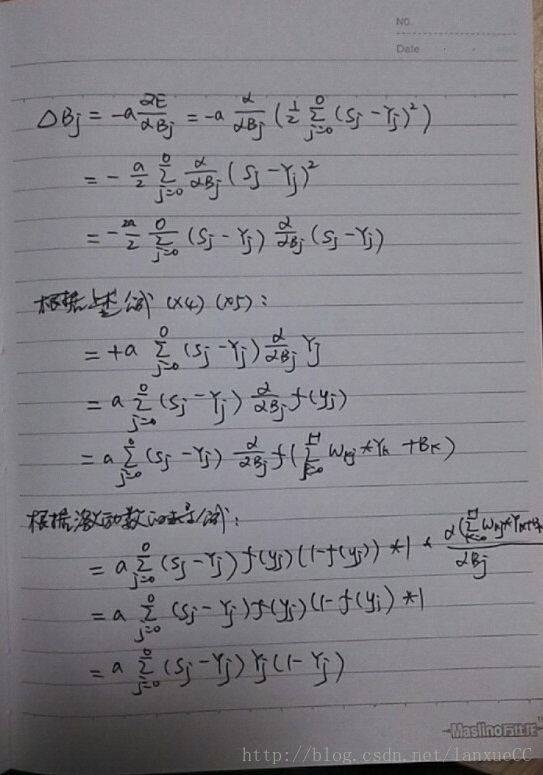 NO.
Date
△Bj = -a ∂E/∂Bj = -a ∂/∂Bj (1/2 Σ_{j=0}^{O} (Sj-Yj)²)
= - a/2 Σ_{j=0}^{O} ∂/∂Bj (Sj-Yj)²
= - 2a/2 Σ_{j=0}^{O} (Sj-Yj) ∂/∂Bj (Sj-Yj)
根据 (x4) (x5):
= +a Σ_{j=0}^{O} (Sj-Yj) ∂/∂Bj Yj
= a Σ_{j=0}^{O} (Sj-Yj) ∂/∂Bj f(yj)
= a Σ_{j=0}^{O} (Sj-Yj) ∂/∂Bj f(Σ_{k=0}^{H} Wkj*Yk + Bk)
根据激动数:
= a Σ_{j=0}^{O} (Sj-Yj) f(yj) (1-f(yj)) *1 * ∂(Σ_{k=0}^{H} Wkj*Yk+Bk/∂Bj
= a Σ_{j=0}^{O} (Sj-Yj) f(yj) (1-f(yj) *1
= a Σ_{j=0}^{O} (Sj-Yj) Yj (1-Yj)
Maslino
http://blog.csdn.net/lanxueCC